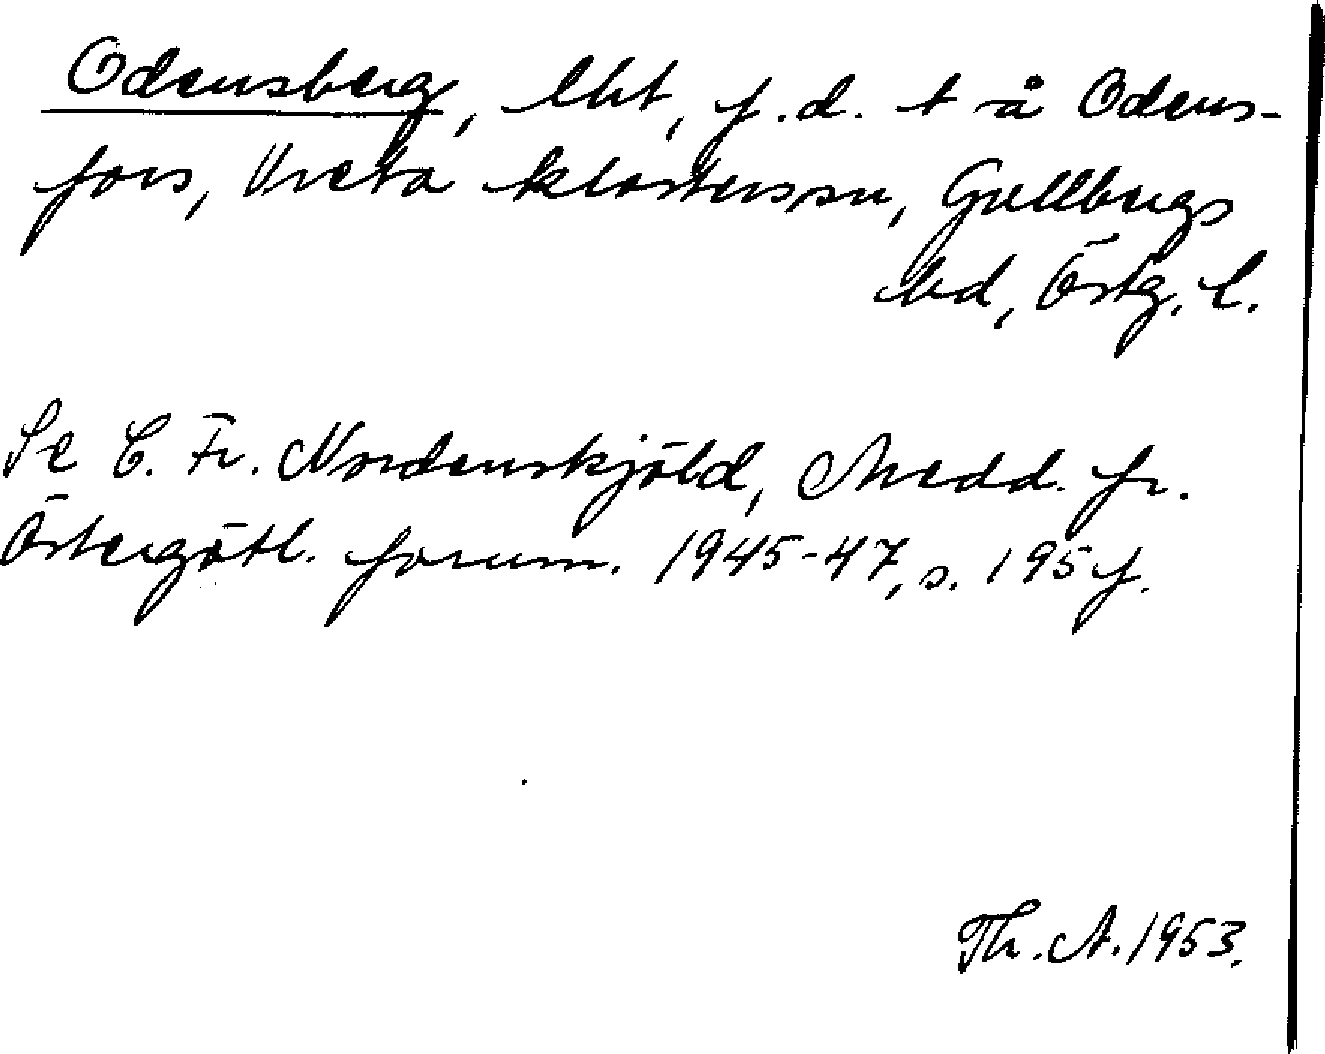 Odensberg, lht, f.d. t å Odens-
fors, Vreta klosters sn, Gullbergs
hd, Östg. l.
Se C. Fr. Nordenskjöld, Medd. fr.
Östergötl. fornm. 1945-47, s. 195 f.
Th. A. 1953.